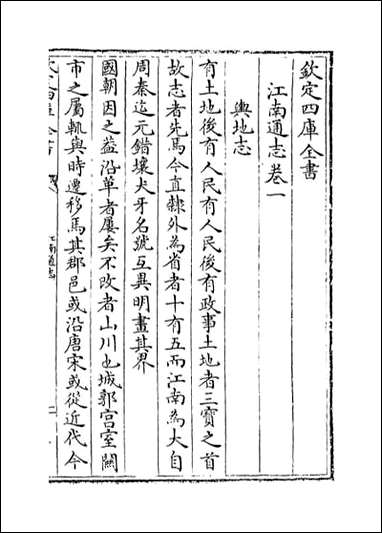 欽定四庫全書
江南通志卷一
輿地志
有土地後有人民有人民後有政事土地者三寶之首
故志者先焉今直隸外為省者十有五而江南為大自
周秦迄元錯壤犬牙名號互異明畫其界
國朝因之益沿革者屢矣不改者山川也城郭宫室闤
市之屬軌與時遷移焉其郡邑或沿唐宋或從近代今
江南通志